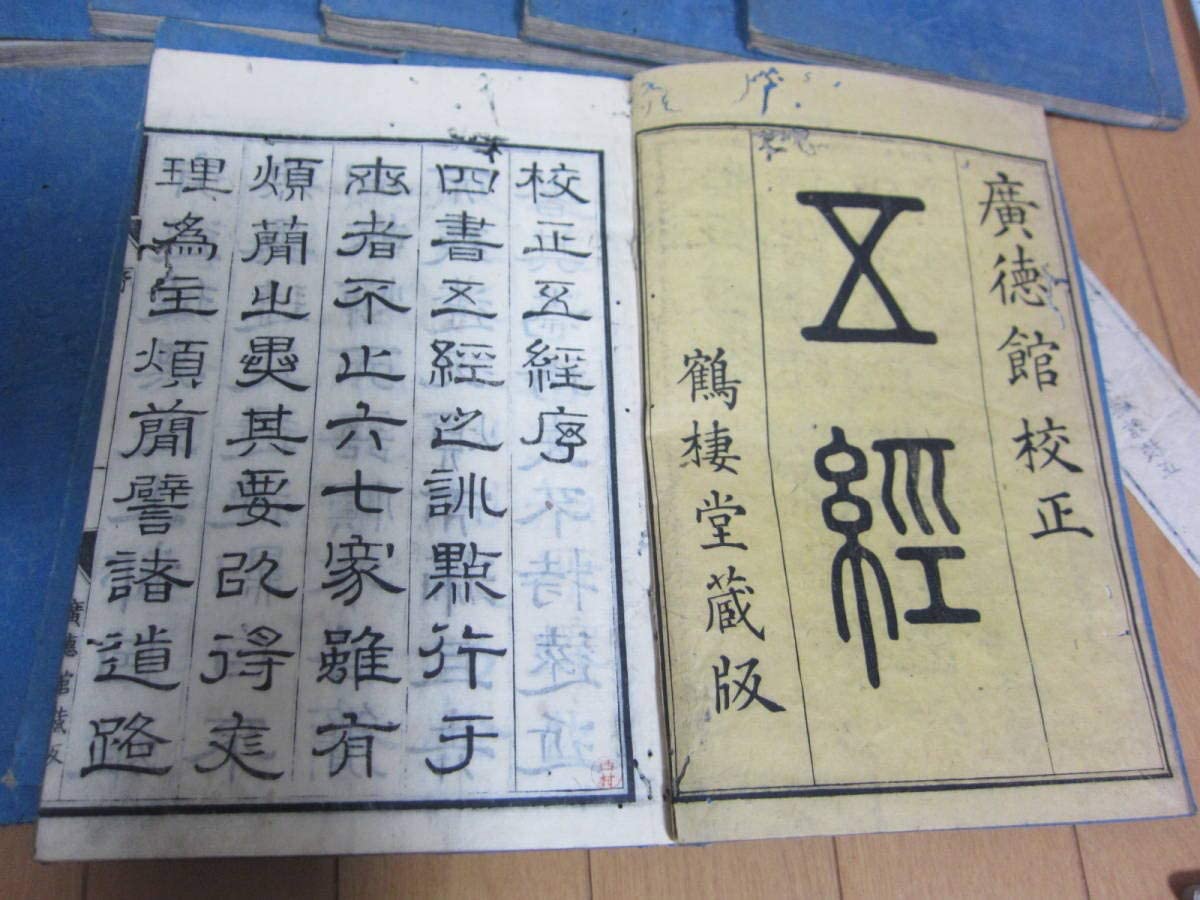 廣德館校正
五經
鶴棲堂蔵版
校正五經序
四書五經之訓點行于
世者不止六七家雖有
煩簡之異其要政得夾
理為主煩簡譬諸道路
廣德館蔵版